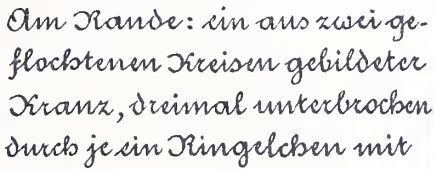 Am Rande: ein aus zwei ge-
flochtenen Kreisen gebildeter
Kranz, dreimal unterbrochen
durch je ein Ringelchen mit